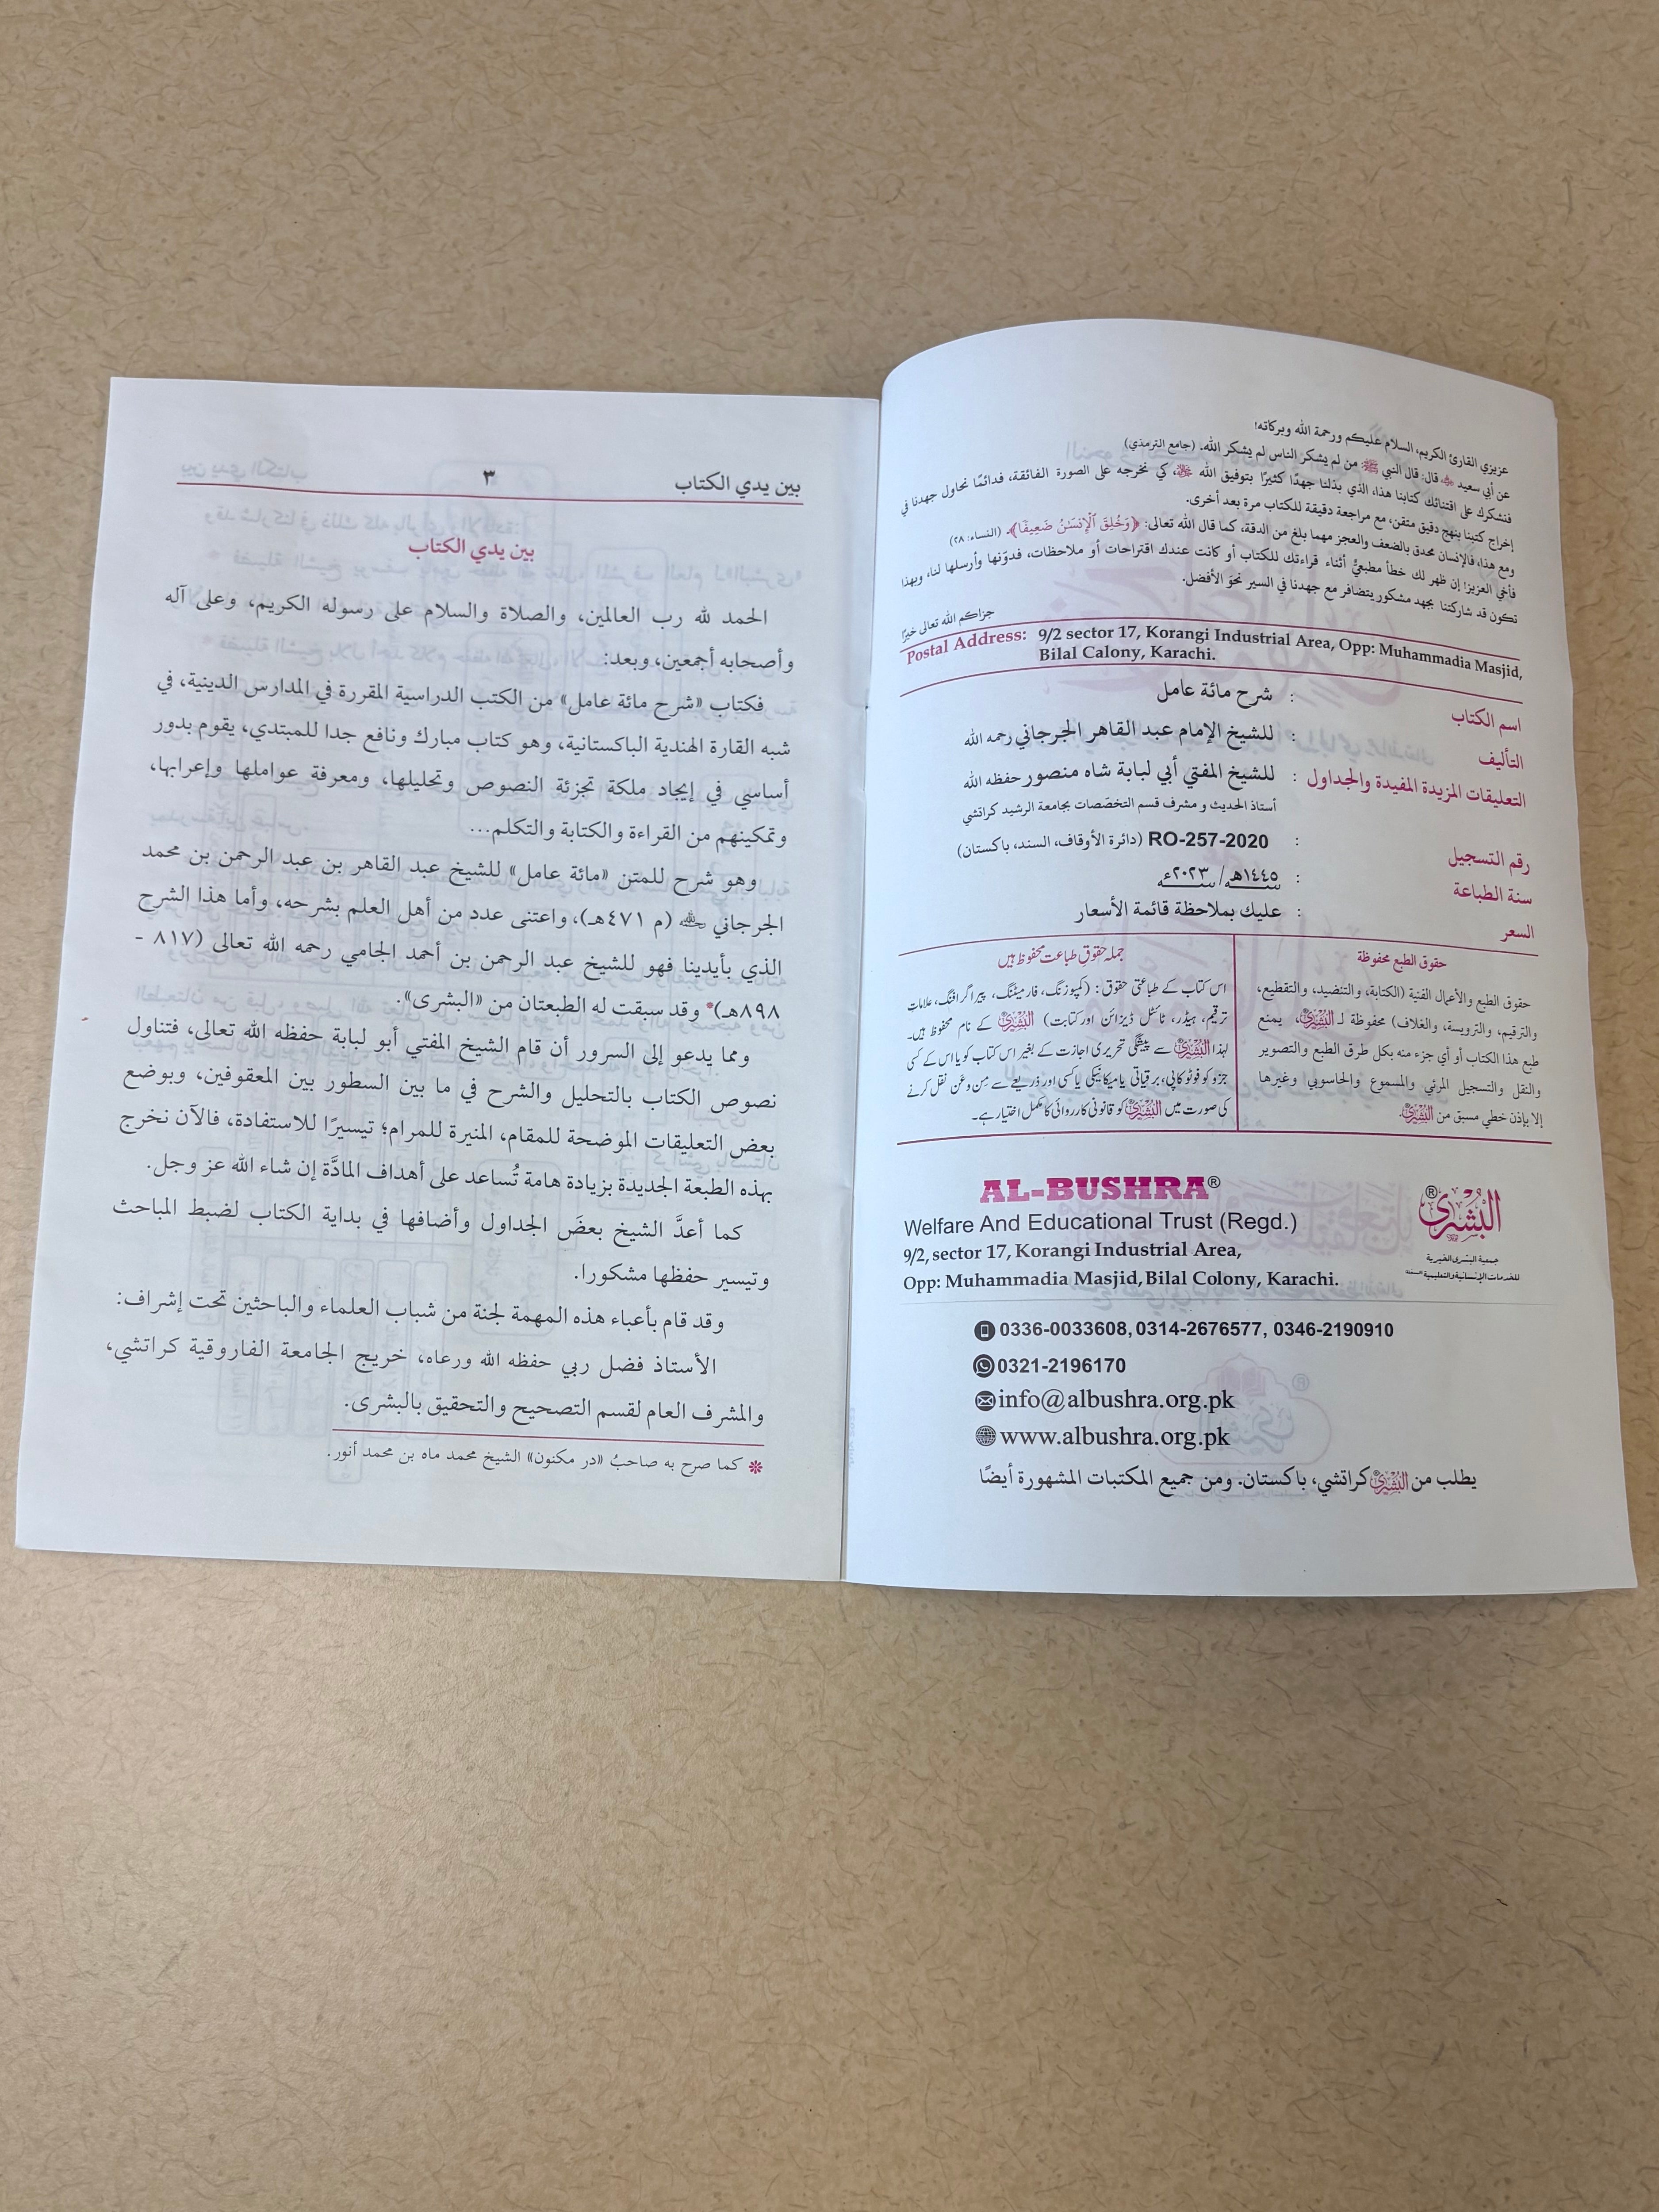 عزيزي القارئ الكريم، السلام عليكم ورحمة الله وبركاته!
عن أبي سعيد ﷺ قال: قال النبي ﷺ: من لم يشكر الناس لم يشكر الله. (جامع الترمذي)
فنشكرك على اقتنائك كتابنا هذا، الذي بذلنا جهدًا كثيرًا بتوفيق الله ﷻ، كي نخرجه على الصورة الفائقة، فدائمًا نحاول جهدنا في
إخراج كتبنا بنهج دقيق متقن، مع مراجعة دقيقة للكتاب مرة بعد أخرى.
ومع هذا، فالإنسان محدق بالضعف والعجز مهما بلغ من الدقة، كما قال الله تعالى: ﴿وَخُلِقَ ٱلْإِنسَٰنُ ضَعِيفًا﴾. (النساء: ٢٨)
فأخي العزيز! إن ظهر لك خطأ مطبعيٌّ أثناء قراءتك للكتاب أو كانت عندك اقتراحات أو ملاحظات، فدوّنها وأرسلها لنا، وبهذا
تكون قد شاركتنا بجهد مشكور يتضافر مع جهدنا في السير نحوَ الأفضل.
جزاكم الله تعالى خيرًا
Postal Address: 9/2 sector 17, Korangi Industrial Area, Opp: Muhammadia Masjid,
Bilal Calony, Karachi.
اسم الكتاب : شرح مائة عامل
التأليف : للشيخ الإمام عبد القاهر الجرجاني رحمه الله
التعليقات المزيدة المفيدة والجداول : للشيخ المفتي أبي لبابة شاه منصور حفظه الله
أستاذ الحديث و مشرف قسم التخصّصات بجامعة الرشيد كراتشي
رقم التسجيل : RO-257-2020 (دائرة الأوقاف، السند، باكستان)
سنة الطباعة : ١٤٤٥هـ/ ٢٠٢٣ء
السعر : عليك بملاحظة قائمة الأسعار
حقوق الطبع محفوظة
حقوق الطبع والأعمال الفنية (الكتابة، والتنضيد، والتقطيع،
والترقيم، والترويسة، والغلاف) محفوظة لـ البشرى®، يمنع
طبع هذا الكتاب أو أي جزء منه بكل طرق الطبع والتصوير
والنقل والتسجيل المرئي والمسموع والحاسوبي وغيرها
إلا بإذن خطي مسبق من البشرى®.
جملہ حقوقِ طباعت محفوظ ہیں
اس کتاب کے طباعتی حقوق: (کمپوزنگ، فارمیٹنگ، پیراگرافنگ، علاماتِ
ترقیم، ہیڈر، ٹائٹل ڈیزائن اور کتابت) البشرى® کے نام محفوظ ہیں۔
لہذا البشرى® سے پیشگی تحریری اجازت کے بغیر اس کتاب کو یا اس کے کسی
جزو کو فوٹو کاپی، برقیاتی یا میکانیکی یا کسی اور ذریعے سے مِن و عَن نقل کرنے
کی صورت میں البشرى® کو قانونی کارروائی کا مکمل اختیار ہے۔
AL-BUSHRA®
Welfare And Educational Trust (Regd.)
9/2, sector 17, Korangi Industrial Area,
Opp: Muhammadia Masjid, Bilal Colony, Karachi.
البشرى®
جمعية البشرى الخيرية
للخدمات الإنسانية والتعليمية
0336-0033608, 0314-2676577, 0346-2190910
0321-2196170
info@albushra.org.pk
www.albushra.org.pk
يطلب من البشرى® كراتشي، باكستان. ومن جميع المكتبات المشهورة أيضًا
بين يدي الكتاب ٣
بين يدي الكتاب
الحمد لله رب العالمين، والصلاة والسلام على رسوله الكريم، وعلى آله
وأصحابه أجمعين، وبعد:
فكتاب «شرح مائة عامل» من الكتب الدراسية المقررة في المدارس الدينية، في
شبه القارة الهندية الباكستانية، وهو كتاب مبارك ونافع جدا للمبتدي، يقوم بدور
أساسي في إيجاد ملكة تجزئة النصوص وتحليلها، ومعرفة عواملها وإعرابها،
وتمكينهم من القراءة والكتابة والتكلم...
وهو شرح للمتن «مائة عامل» للشيخ عبد القاهر بن عبد الرحمن بن محمد
الجرجاني رحمه الله (م ٤٧١هـ)، واعتنى عدد من أهل العلم بشرحه، وأما هذا الشرح
الذي بأيدينا فهو للشيخ عبد الرحمن بن أحمد الجامي رحمه الله تعالى (٨١٧ -
٨٩٨هـ)* وقد سبقت له الطبعتان من «البشرى».
ومما يدعو إلى السرور أن قام الشيخ المفتي أبو لبابة حفظه الله تعالى، فتناول
نصوص الكتاب بالتحليل والشرح في ما بين السطور بين المعقوفين، وبوضع
بعض التعليقات الموضحة للمقام، المنيرة للمرام؛ تيسيرًا للاستفادة، فالآن نخرج
بهذه الطبعة الجديدة بزيادة هامة تُساعد على أهداف المادَّة إن شاء الله عز وجل.
كما أعدَّ الشيخ بعضَ الجداول وأضافها في بداية الكتاب لضبط المباحث
وتيسير حفظها مشكورا.
وقد قام بأعباء هذه المهمة لجنة من شباب العلماء والباحثين تحت إشراف:
الأستاذ فضل ربي حفظه الله ورعاه، خريج الجامعة الفاروقية كراتشي،
والمشرف العام لقسم التصحيح والتحقيق بالبشرى.
* كما صرح به صاحبُ «در مكنون» الشيخ محمد ماه بن محمد أنور.